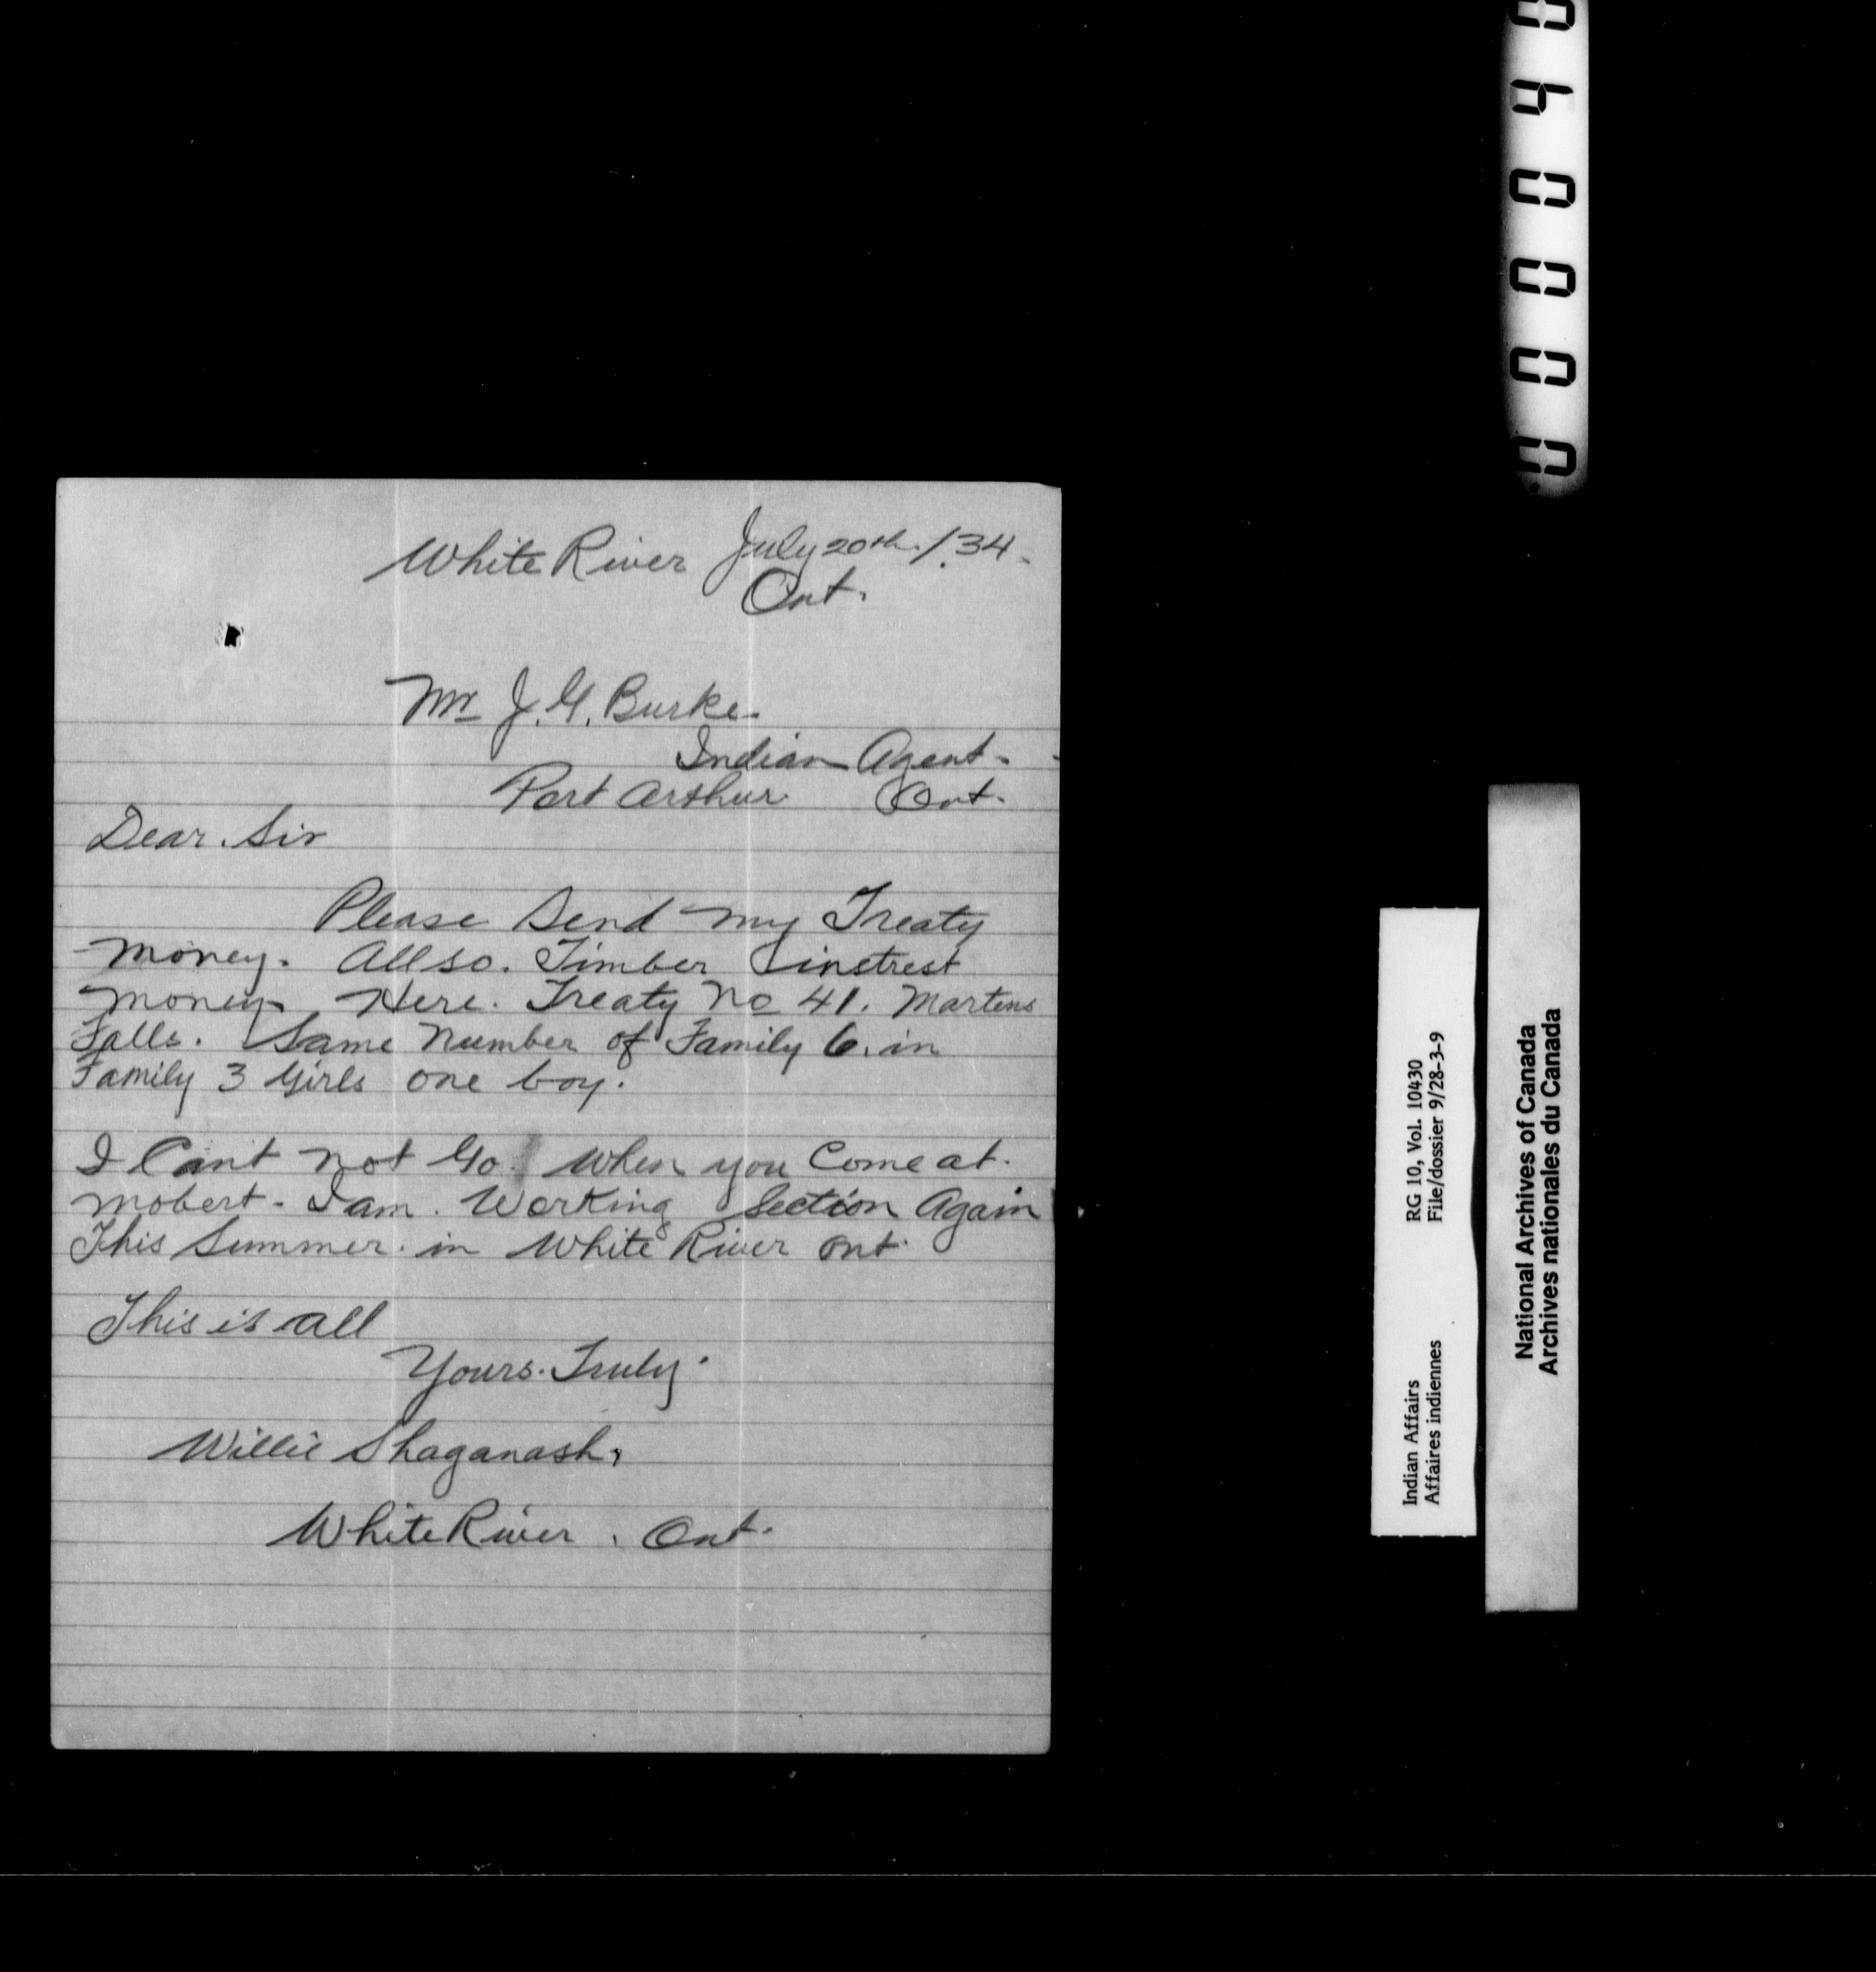 White River July 20th. /.34.
Ont.
Mr J. G. Burke.
Indian Agent.
Port Arthur. Ont.
Dear. Sir
Please Send my Treaty
money. Allso. Timber instrest
money Here. Treaty no 41. Martens
Falls. Same Number of Family 6. in
Family 3 Girls one boy.
I Cant not Go. When you Come at.
mobert - I am. Working Section Again
This Summer. in White River ont.
This is all
Yours. Truly.
Willie Shaganash,
White River. Ont.
Indian Affairs RG 10, Vol. 10430
Affaires indiennes File/dossier 9/28-3-9
National Archives of Canada
Archives nationales du Canada